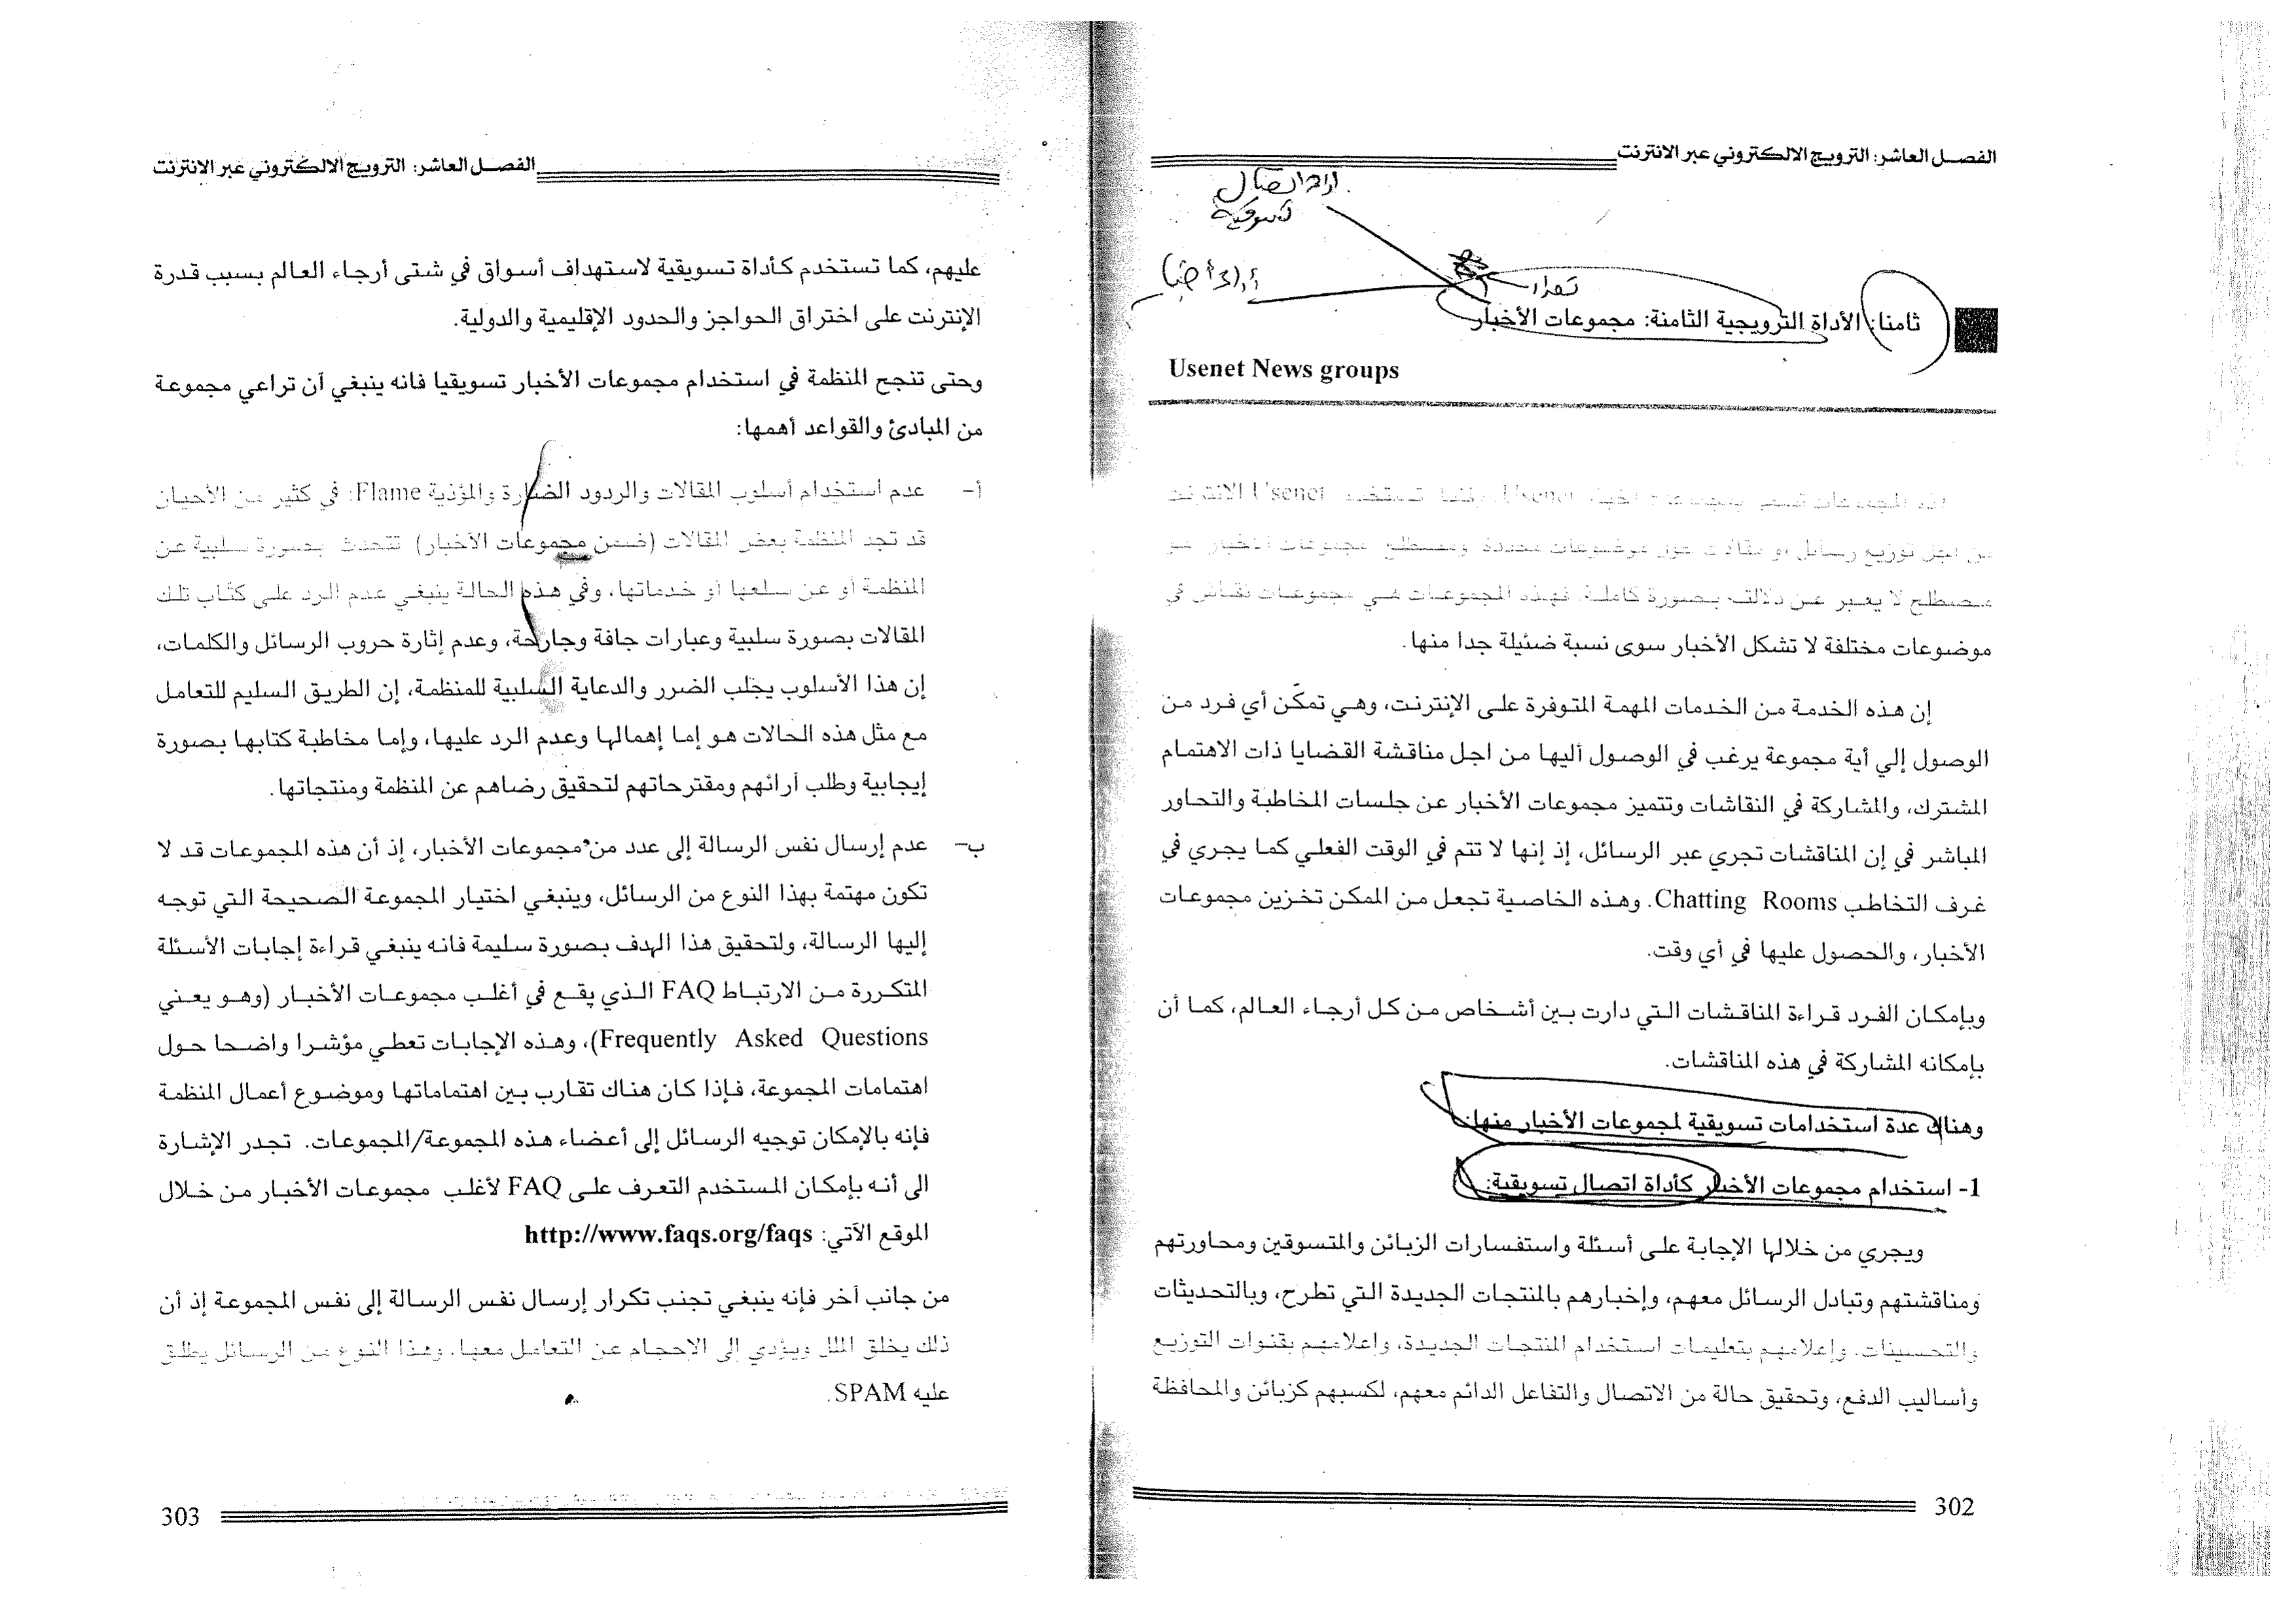 الفصل العاشر: الترويج الالكتروني عبر الانترنت
اداة اتصال
تسويقية
ثامنا: الأداة الترويجية الثامنة: مجموعات الأخبار
Usenet News groups
هذه المجموعات تسمى بمجموعات أخبار Usenet، وتستخدم Usenet الانترنت
من اجل توزيع رسائل أو مقالات حول موضوعات محددة ومصطلح مجموعات الأخبار هو
مصطلح لا يعبر عن دلالته بصورة كاملة. فهذه المجموعات هي مجموعات نقاش في
موضوعات مختلفة لا تشكل الأخبار سوى نسبة ضئيلة جدا منها.
إن هذه الخدمة من الخدمات المهمة المتوفرة على الإنترنت، وهي تمكّن أي فرد من
الوصول إلي أية مجموعة يرغب في الوصول أليها من اجل مناقشة القضايا ذات الاهتمام
المشترك، والمشاركة في النقاشات وتتميز مجموعات الأخبار عن جلسات المخاطبة والتحاور
المباشر في إن المناقشات تجري عبر الرسائل، إذ إنها لا تتم في الوقت الفعلي كما يجري في
غرف التخاطب Chatting Rooms. وهذه الخاصية تجعل من الممكن تخزين مجموعات
الأخبار، والحصول عليها في أي وقت.
وبإمكان الفرد قراءة المناقشات التي دارت بين أشخاص من كل أرجاء العالم، كما أن
بإمكانه المشاركة في هذه المناقشات.
وهناك عدة استخدامات تسويقية لمجموعات الأخبار منها:
1- استخدام مجموعات الأخبار كأداة اتصال تسويقية:
ويجري من خلالها الإجابة على أسئلة واستفسارات الزبائن والمتسوقين ومحاورتهم
ومناقشتهم وتبادل الرسائل معهم، وإخبارهم بالمنتجات الجديدة التي تطرح، وبالتحديثات
والتحسينات. وإعلامهم بتعليمات استخدام المنتجات الجديدة، وإعلامهم بقنوات التوزيع
وأساليب الدفع، وتحقيق حالة من الاتصال والتفاعل الدائم معهم، لكسبهم كزبائن والمحافظة
302
الفصل العاشر: الترويج الالكتروني عبر الانترنت
عليهم، كما تستخدم كأداة تسويقية لاستهداف أسواق في شتى أرجاء العالم بسبب قدرة
الإنترنت على اختراق الحواجز والحدود الإقليمية والدولية.
وحتى تنجح المنظمة في استخدام مجموعات الأخبار تسويقيا فانه ينبغي أن تراعي مجموعة
من المبادئ والقواعد أهمها:
أ- عدم استخدام أسلوب المقالات والردود الضارة والمؤذية Flame: في كثير من الأحيان
قد تجد المنظمة بعض المقالات (ضمن مجموعات الأخبار) تتحدث بصورة سلبية عن
المنظمة أو عن سلعها أو خدماتها، وفي هذه الحالة ينبغي عدم الرد على كتّاب تلك
المقالات بصورة سلبية وعبارات جافة وجارحة، وعدم إثارة حروب الرسائل والكلمات،
إن هذا الأسلوب يجلب الضرر والدعاية السلبية للمنظمة، إن الطريق السليم للتعامل
مع مثل هذه الحالات هو إما إهمالها وعدم الرد عليها، وإما مخاطبة كتابها بصورة
إيجابية وطلب آرائهم ومقترحاتهم لتحقيق رضاهم عن المنظمة ومنتجاتها.
ب- عدم إرسال نفس الرسالة إلى عدد من مجموعات الأخبار، إذ أن هذه المجموعات قد لا
تكون مهتمة بهذا النوع من الرسائل، وينبغي اختيار المجموعة الصحيحة التي توجه
إليها الرسالة، ولتحقيق هذا الهدف بصورة سليمة فانه ينبغي قراءة إجابات الأسئلة
المتكررة من الارتباط FAQ الذي يقع في أغلب مجموعات الأخبار (وهو يعني
Frequently Asked Questions)، وهذه الإجابات تعطي مؤشرا واضحا حول
اهتمامات المجموعة، فإذا كان هناك تقارب بين اهتماماتها وموضوع أعمال المنظمة
فإنه بالإمكان توجيه الرسائل إلى أعضاء هذه المجموعة/المجموعات. تجدر الإشارة
الى أنه بإمكان المستخدم التعرف على FAQ لأغلب مجموعات الأخبار من خلال
الموقع الآتي: http://www.faqs.org/faqs
من جانب آخر فإنه ينبغي تجنب تكرار إرسال نفس الرسالة إلى نفس المجموعة إذ أن
ذلك يخلق الملل ويؤدي إلى الإحجام عن التعامل معها. وهذا النوع من الرسائل يطلق
عليه SPAM.
303